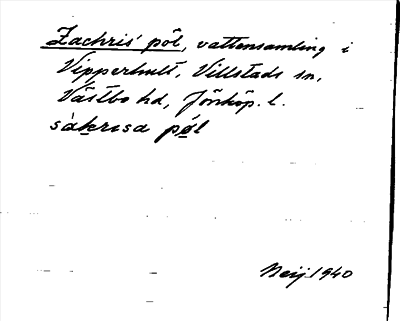 Zachris' pöl, vattensamling i
Vipperhult, Villstads sn,
Västbo hd, Jönköp. l.
sàkrisa pǿl
Neij 1940